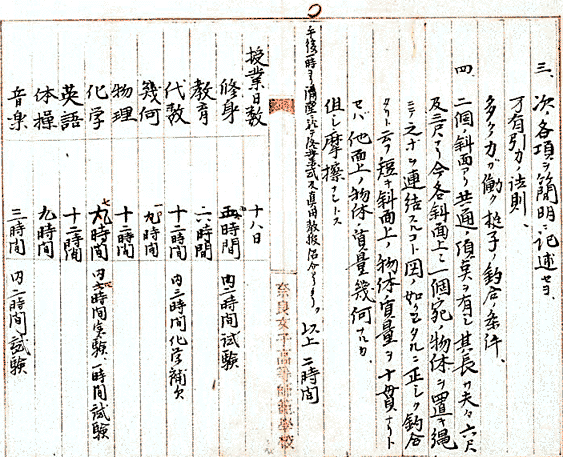 三、次ノ各項ヲ簡明ニ記述セヨ
万有引力ノ法則、
多クノ力ガ働ク梃子ノ釣合ノ条件、
四、二個ノ斜面アリ共通ノ頂点ヲ有シ其長サ夫々六尺
及三尺ナリ今各斜面上ニ一個宛ノ物体ヲ置キ縄
ニテ之ヲ連結スルコト図ノ如クセルニ正シク釣合
タリト云フ短キ斜面上ノ物体ノ質量ヲ十貫ナリト
セバ他面上ノ物体ノ質量幾何ナルカ、
但シ摩擦ナシトス
以上 二時間
午後一時ヨリ講堂ニ於テ
授業日数 十八日
修身 五時間 内二時間試験
教育 六時間
代数 十二時間 内三時間化学補欠
幾何 九時間
物理 十二時間
化学 九時間 内六時間実験、一時間試験
英語 十二時間
体操 九時間
音楽 三時間 内一時間試験
奈良女子高等師範学校